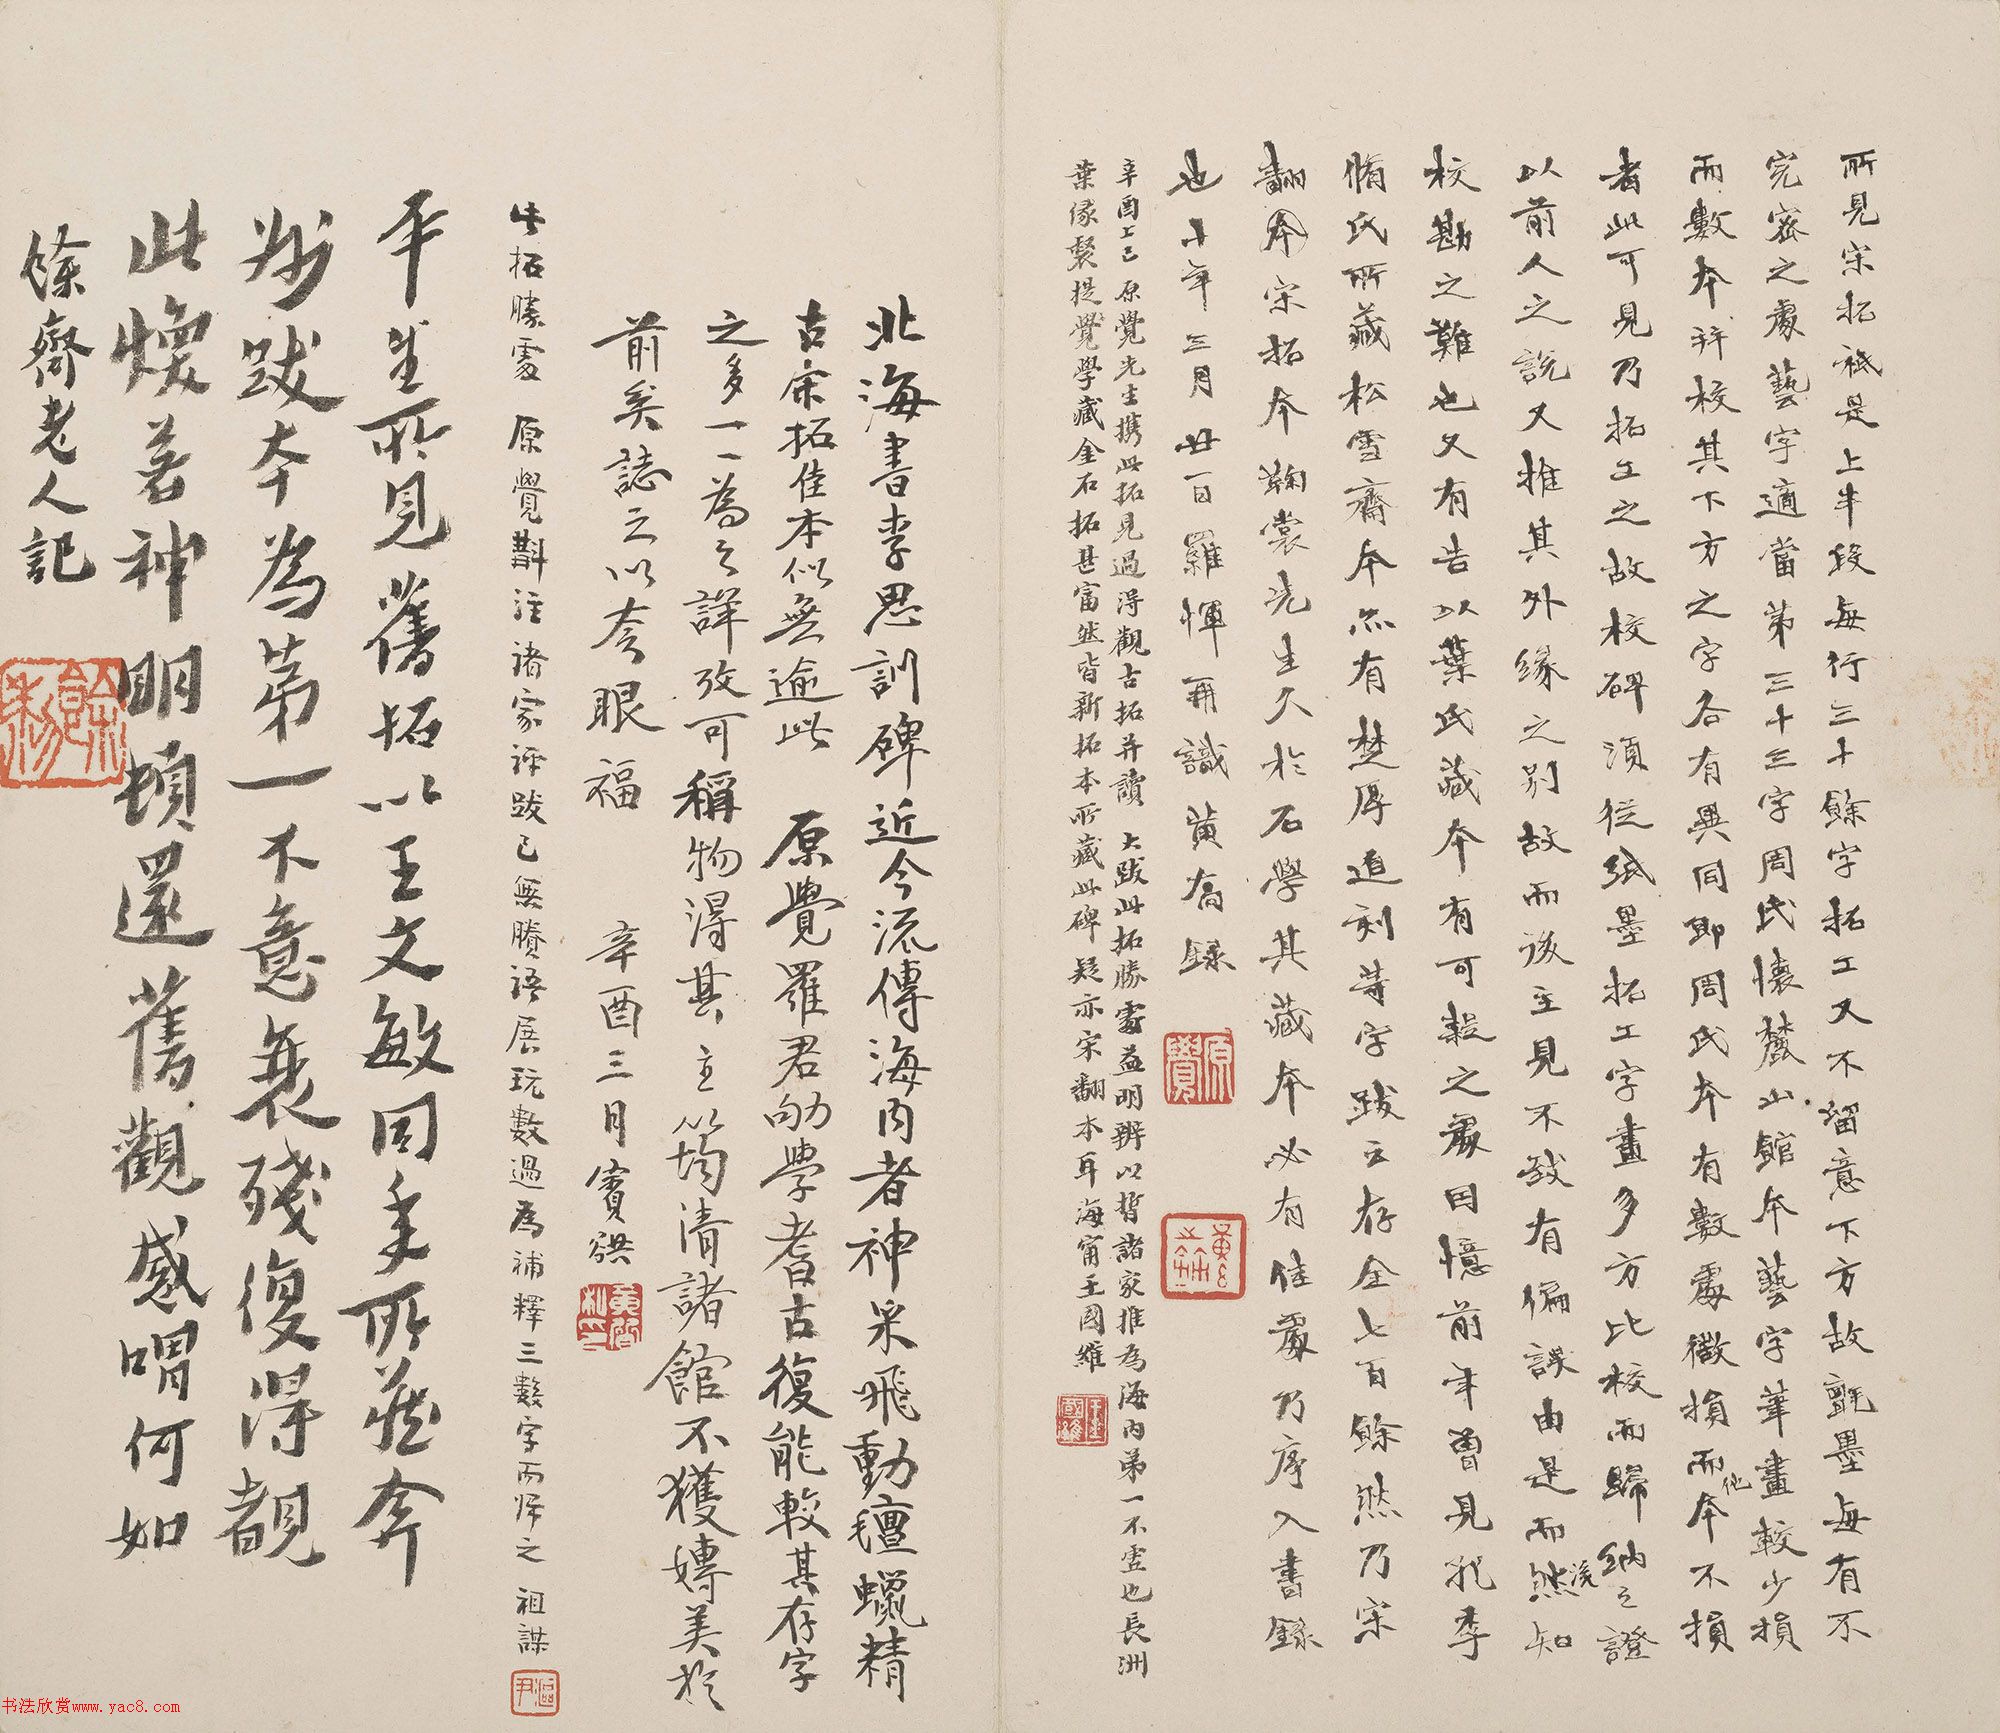 所見宋拓祇是上半段每行三十餘字拓工又不留意下方故氈墨每有不
完密之處藝字適當第三十三字周氏懷麓山館本藝字筆畫較少損
而數本并校其下方之字各有異同即周氏本有數處微損而他本不損
者此可見乃拓工之故校碑須從紙墨拓工字畫多方比校而歸納之證
以前人之說又推其外緣之別故而後主見不致有偏誤由是而然後知
校勘之難也又有告以葉氏藏本有可疑之處因憶前年曾見孔季
脩氏所藏松雪齋本亦有楚厚追刻等字跋云存全七百餘然乃宋
翻本宋拓本鞠裳先生久於石學其藏本必有佳處乃序入書錄
也十年三月廿一日羅惲再識黃裔錄
辛酉上巳原覺先生攜此拓見過得觀古拓并讀大跋此拓勝處益明辨以皙諸家推為海內第一不虛也長洲
葉緣督提學藏金石拓甚富然皆新拓本所藏此碑疑亦宋翻本耳海甯王國維
北海書李思訓碑近今流傳海內者神采飛動氈蠟精
古宋拓佳本似無逾此 原覺羅君劬學耆古復能較其存字
之多一一為之詳攷可稱物得其主以筠清諸館不獲專美於
前矣誌之以夸眼福 辛酉三月賓虹
此拓勝處 原覺斠注諸家評跋已無賸語展玩數過為補釋三數字而歸之 祖謀
平生所見舊拓以王文敏同年所藏本
郑跋本為第一不意喪殘復得覩
此煥若神明頓還舊觀感喟何如
餘齋老人記
原覺
王國維
漚尹
书法欣赏www.yac8.com